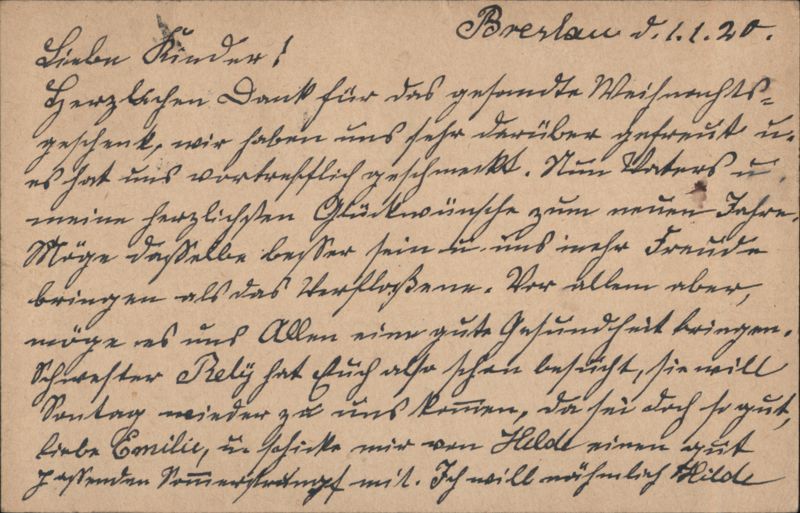 Breslau d. 1.1.20.
Liebe Kinder!
Herzlichen Dank für das gesandte Weihnachts-
geschenk, wir haben uns sehr darüber gefreut u.
es hat uns vortrefflich geschmeckt. Nun Vaters u.
meine herzlichsten Glückwünsche zum neuen Jahre.
Möge dasselbe besser sein u. uns mehr Freude
bringen als das Verfloßene. Vor allem aber,
möge es uns Allen eine gute Gesundheit bringen.
Schwester Rely hat Euch also schon besucht, sie will
Sontag wieder zu uns kommen, da sei doch so gut,
liebe Emilie, u. schicke mir von Hilde einen gut
passenden Sommerstrumpf mit. Ich will nähmlich Hilde